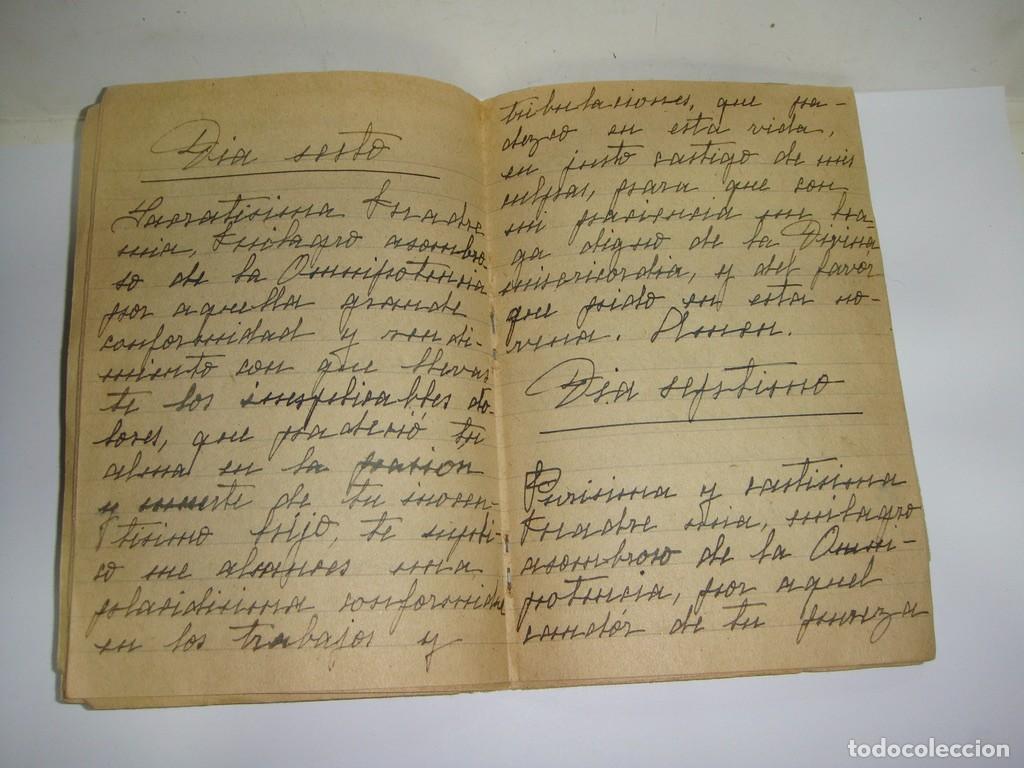 Dia sesto
Sacratisima Madre
mia, Milagro asombro-
so de la Omnipotencia
por aquella grande
conformidad y rendi-
miento con que llevas
te los inesplicables do-
lores, que padeció tu
alma en la pasion
y muerte de tu inocen-
tisimo hijo, te supli-
co me alcances una
placidisima conformidad
en los trabajos y
tribulaciones, que pa-
dezco en esta vida,
en justo castigo de mis
culpas, para que con
mi paciencia me ha-
ga digno de la Divina
misericordia, y del favor
que pido en esta no-
vena. Amen.
Dia septimo
Purisima y castisima
Madre mia, milagro
asombroso de la Omni-
potencia, por aquel
candór de tu pureza
todocoleccion